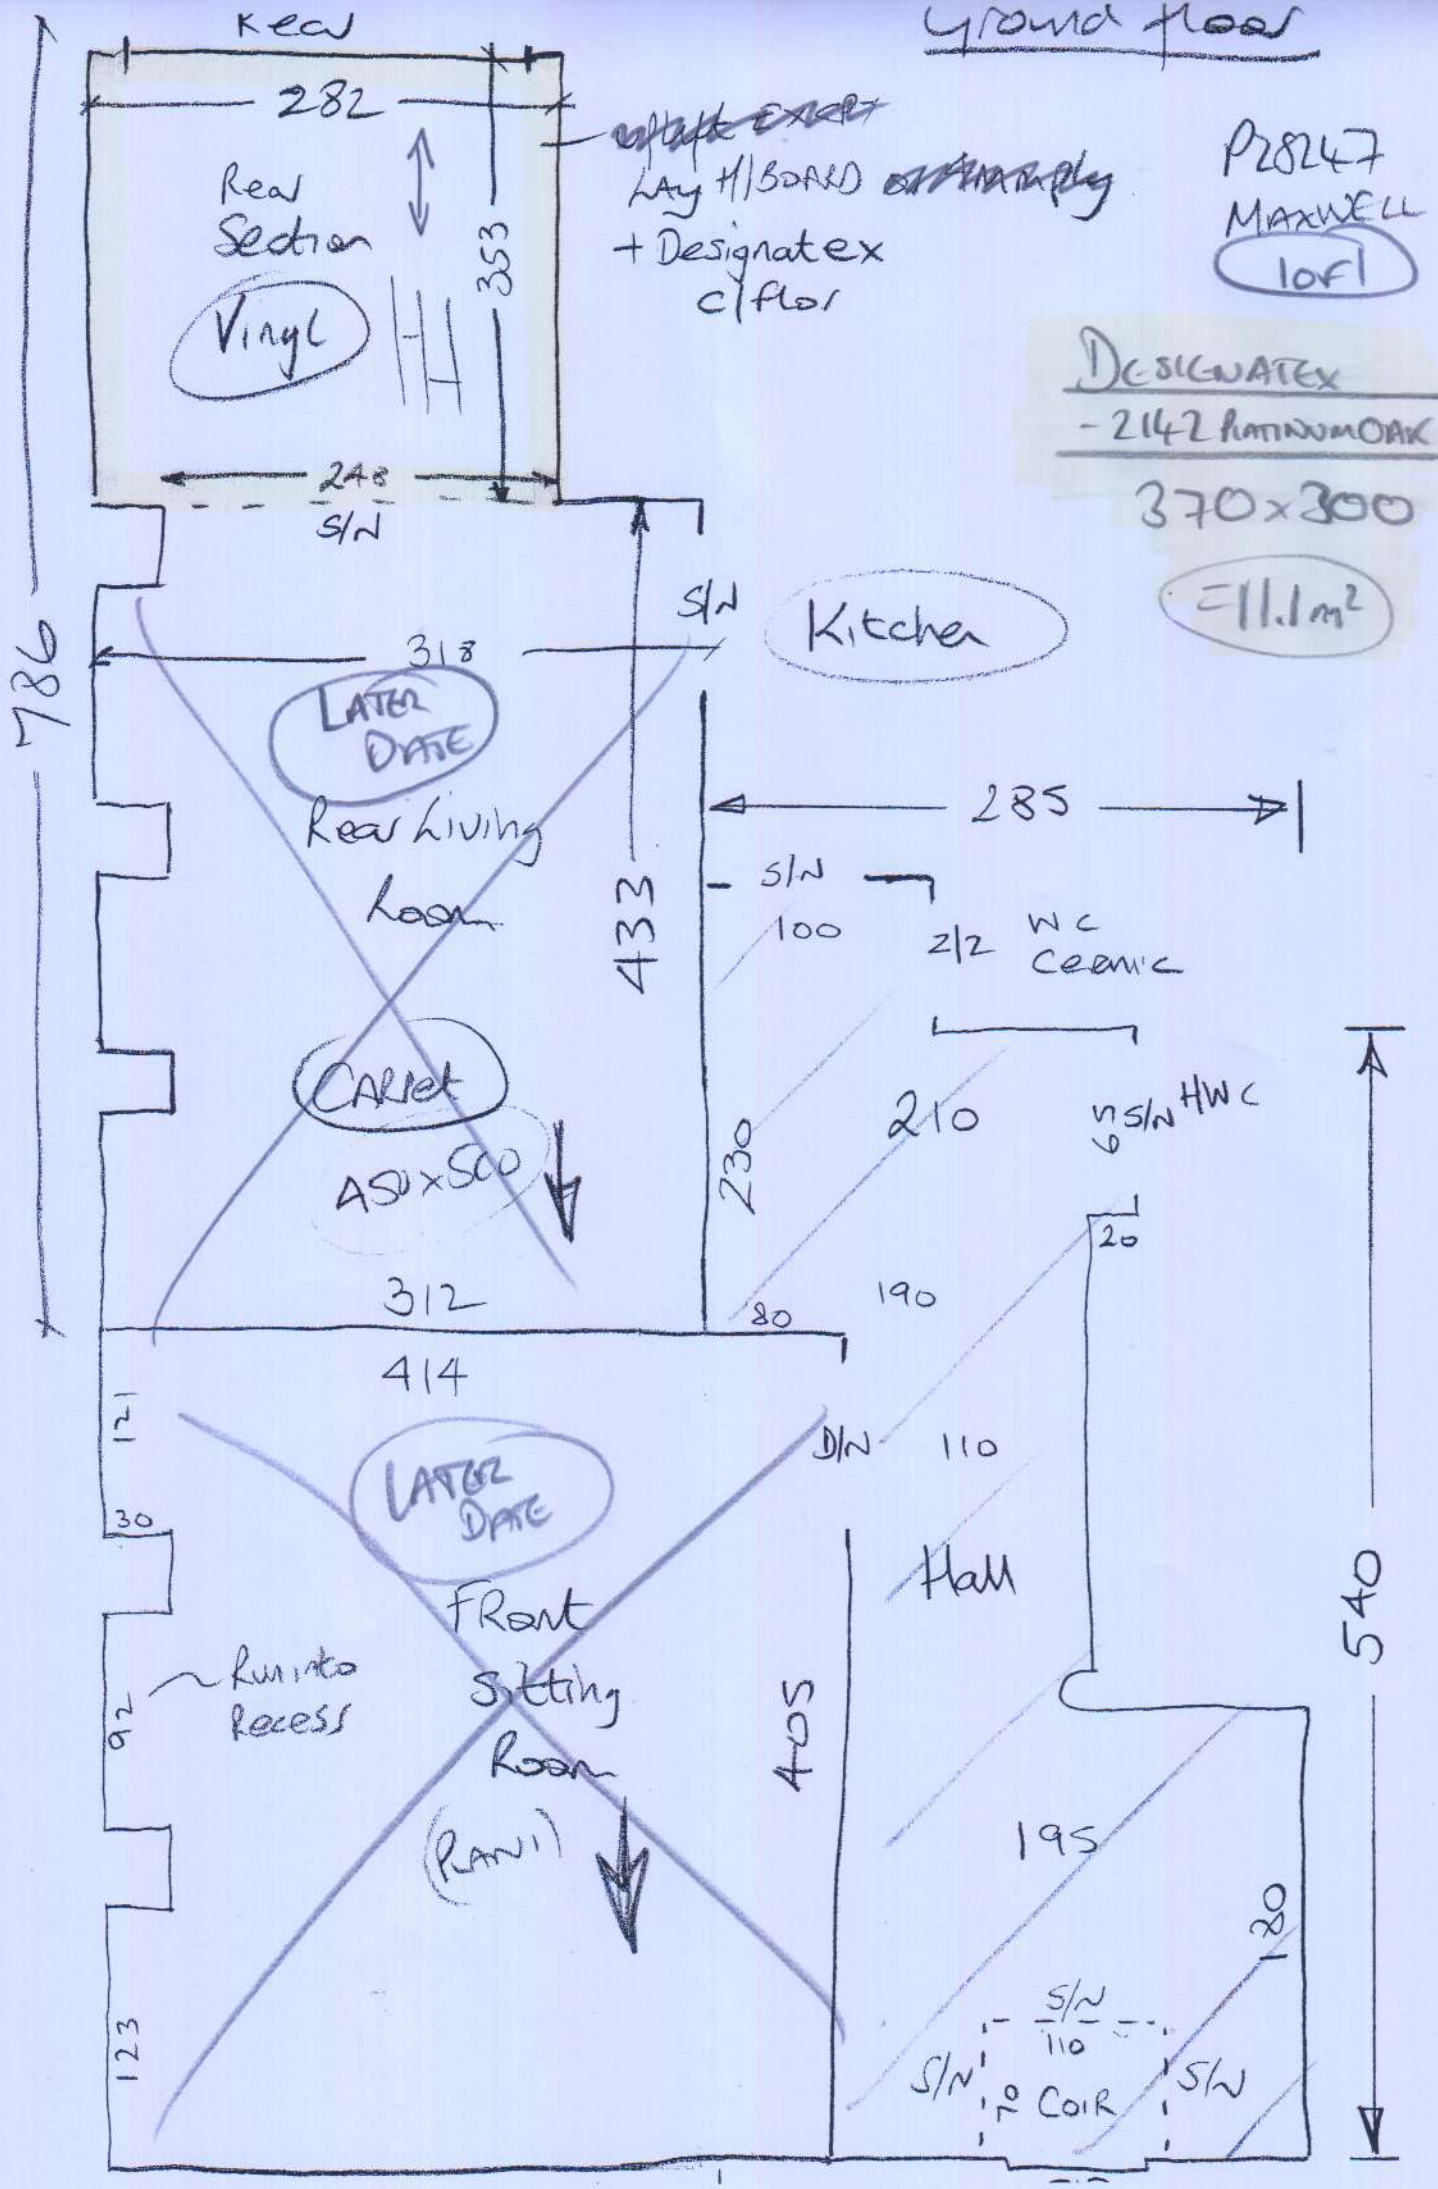 Ground floor
Rear
282
Rear
Section
Vinyl
353
LAY H/BOARD
+ Designatex
c/flor
P28247
MAXWELL
1 OF 1
DESIGNATEX
- 2142 PLATINUM OAK
370 x 300
= 11.1 m²
248
S/N
786
S/N
Kitchen
318
LATER
DATE
Rear Living
Room
433
285
S/N
100
2/2
WC
Ceramic
CARPET
450 x 500
230
210
65 S/N HWC
20
312
80
190
414
121
LATER
DATE
D/N
110
30
Hall
540
Front
Sitting
Room
(PLAN 1)
Run into
Recess
92
405
195
180
123
S/N
110
S/N
70
COIR
S/N